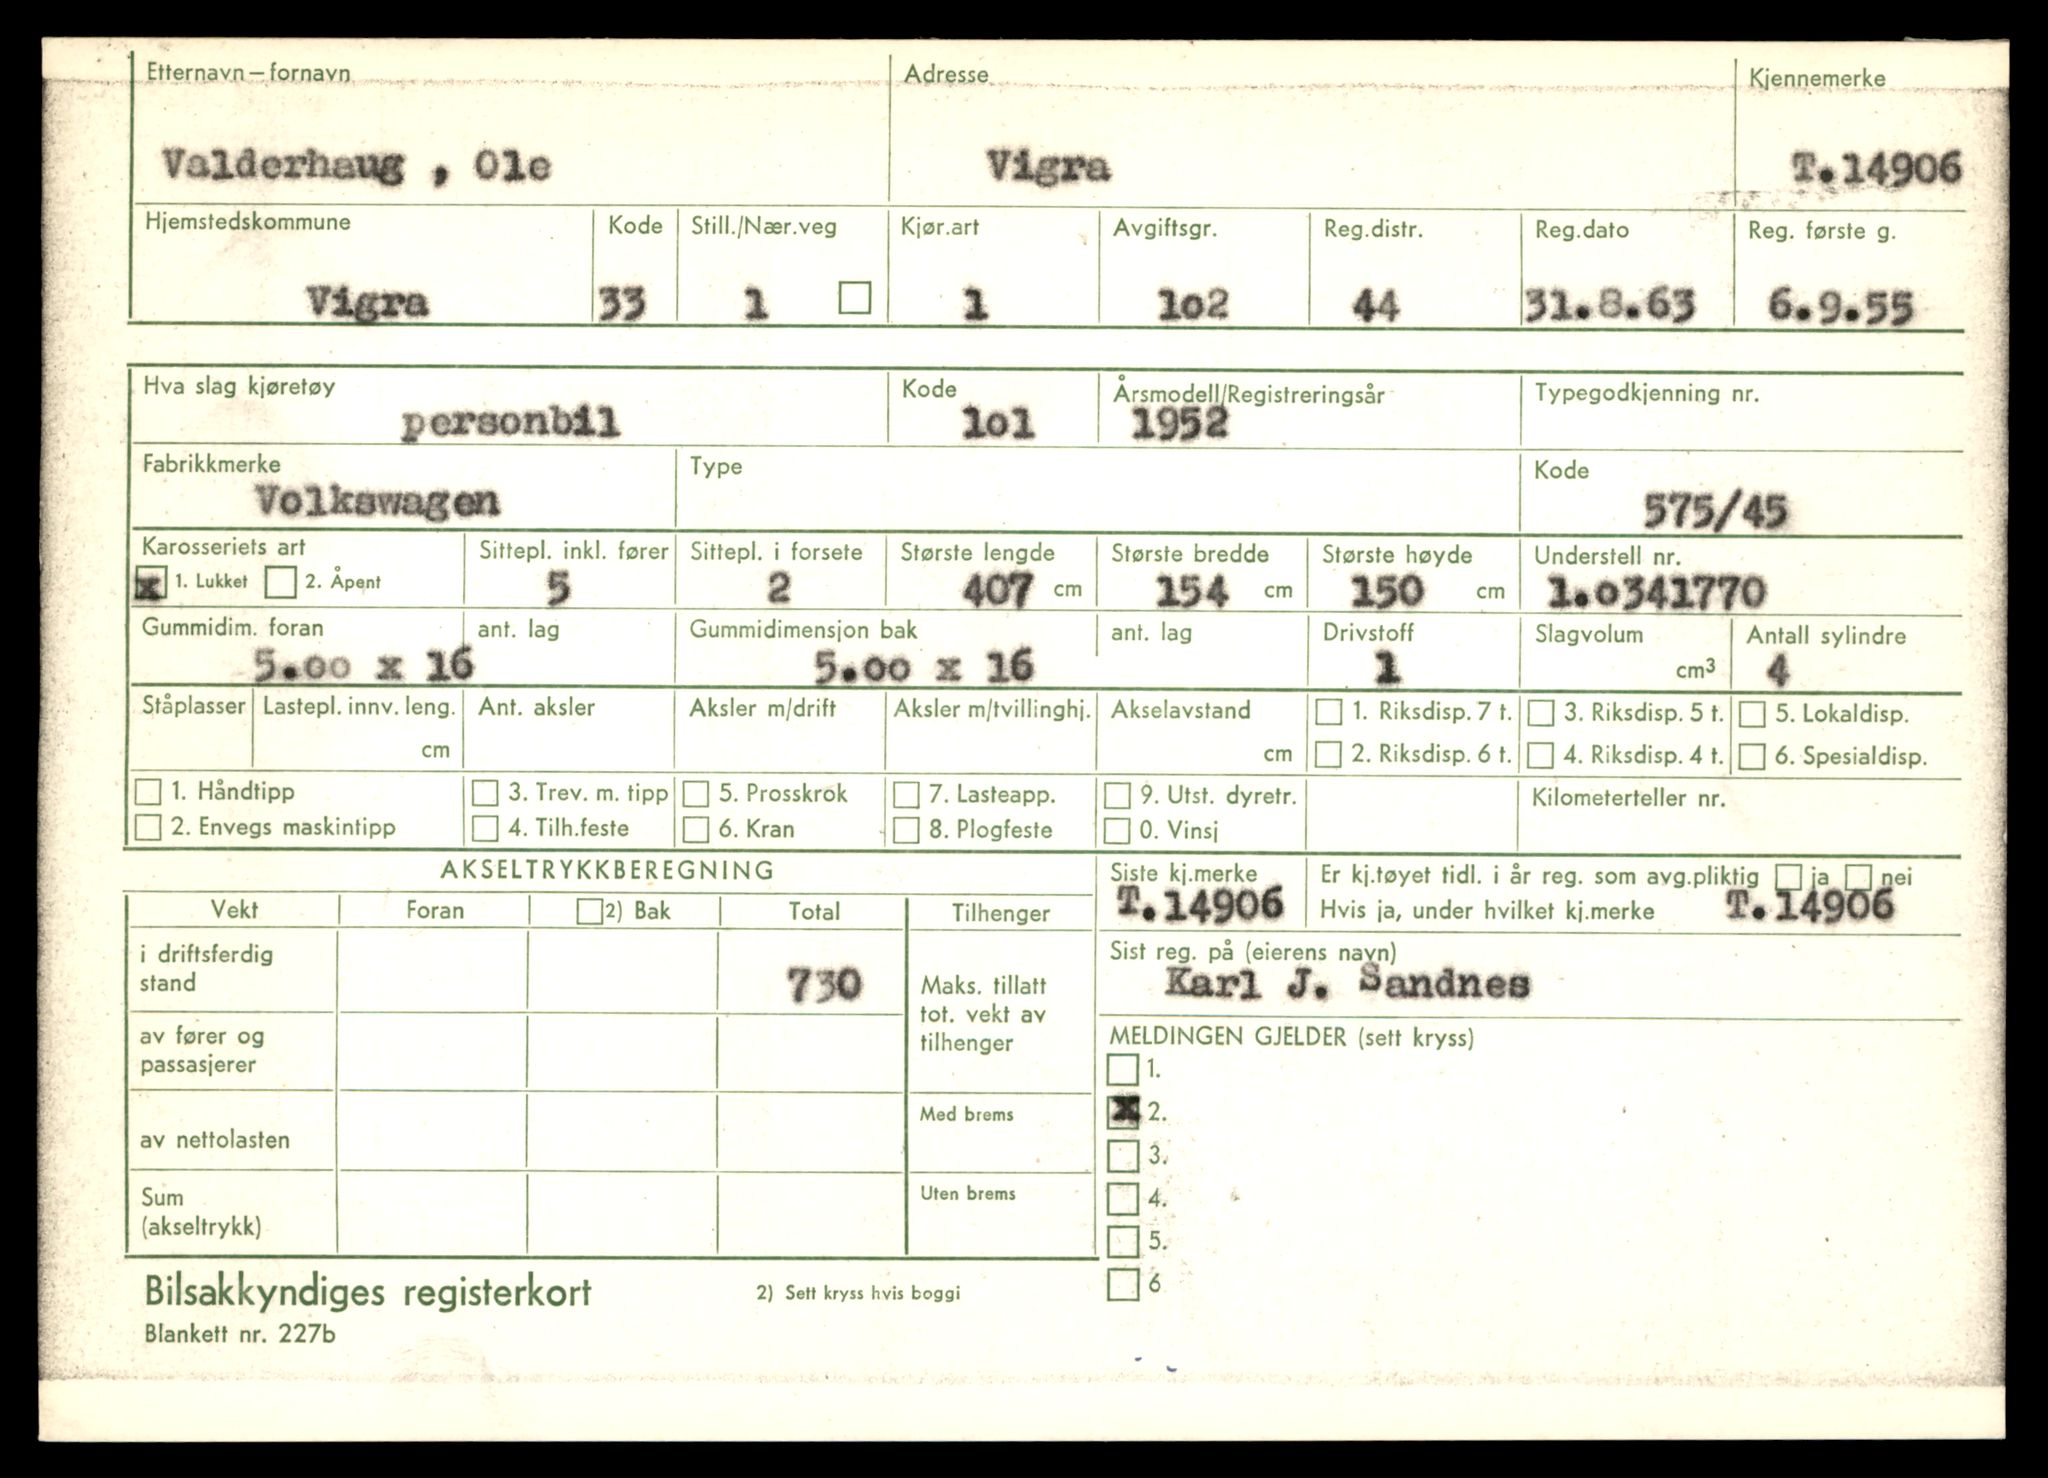 Etternavn – fornavn Adresse Kjennemerke
Valderhaug , Ole Vigra T.14906
Hjemstedskommune Kode Still./Nær.veg Kjør.art Avgiftsgr. Reg.distr. Reg.dato Reg. første g.
Vigra 33 1 1 1o2 44 31.8.63 6.9.55
Hva slag kjøretøy Kode Årsmodell/Registreringsår Typegodkjenning nr.
personbil 1o1 1952
Fabrikkmerke Type Kode
Volkswagen 575/45
Karosseriets art Sittepl. inkl. fører Sittepl. i forsete Største lengde Største bredde Største høyde Understell nr.
x 1. Lukket 2. Åpent 5 2 407 cm 154 cm 150 cm 1.o341770
Gummidim. foran ant. lag Gummidimensjon bak ant. lag Drivstoff Slagvolum Antall sylindre
5.oo x 16 5.oo x 16 1 cm³ 4
Ståplasser Lastepl. innv. leng. Ant. aksler Aksler m/drift Aksler m/tvillinghj. Akselavstand 1. Riksdisp. 7 t. 3. Riksdisp. 5 t. 5. Lokaldisp.
cm cm 2. Riksdisp. 6 t. 4. Riksdisp. 4 t. 6. Spesialdisp.
1. Håndtipp 3. Trev. m. tipp 5. Prosskrok 7. Lasteapp. 9. Utst. dyretr. Kilometerteller nr.
2. Envegs maskintipp 4. Tilh.feste 6. Kran 8. Plogfeste 0. Vinsj
AKSELTRYKKBEREGNING Siste kj.merke Er kj.tøyet tidl. i år reg. som avg.pliktig ja nei
T.14906 Hvis ja, under hvilket kj.merke T.14906
Vekt Foran 2) Bak Total Tilhenger
Sist reg. på (eierens navn)
Karl J. Sandnes
i driftsferdig
stand 730
Maks. tillatt
tot. vekt av
tilhenger
av fører og
passasjerer
MELDINGEN GJELDER (sett kryss)
1.
x 2.
3.
4.
5.
6
av nettolasten Med brems
Sum
(akseltrykk) Uten brems
Bilsakkyndiges registerkort 2) Sett kryss hvis boggi
Blankett nr. 227b